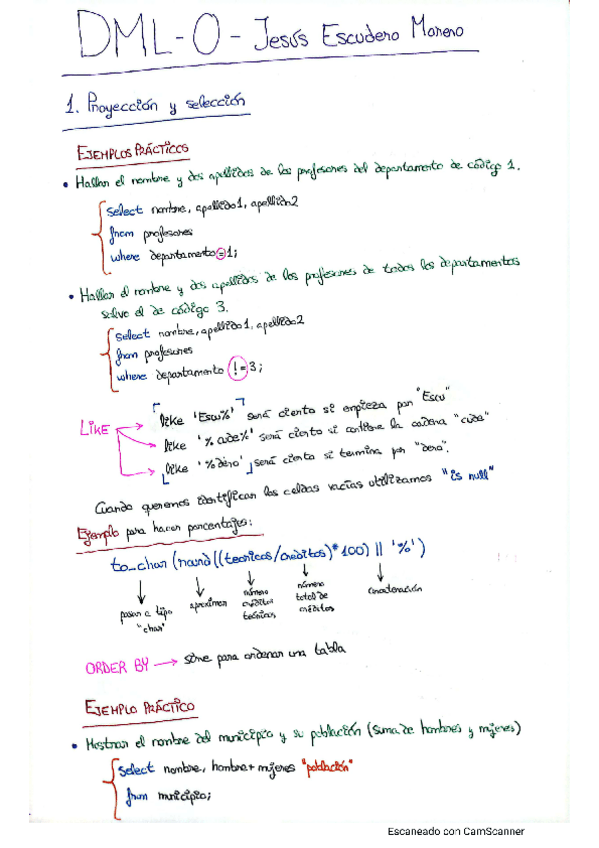 DML-0 - Jesús Escudero Moreno
1. Proyección y selección
EJEMPLOS PRÁCTICOS
• Hallar el nombre y dos apellidos de los profesores del departamento de código 1.
select nombre, apellido1, apellido2
from profesores
where departamento = 1;
• Hallar el nombre y dos apellidos de los profesores de todos los departamentos
salvo el de código 3.
select nombre, apellido1, apellido2
from profesores
where departamento != 3;
LIKE → like 'Escu%' será cierto si empieza por "Escu"
like '%cude%' será cierto si contiene la cadena "cude"
like '%dero' será cierto si termina por "dero".
Cuando queremos identificar las celdas vacías utilizamos "is null"
Ejemplo para hacer porcentajes:
to_char (round ((teoricos/creditos)*100) || '%')
pasar a tipo "char"
aproximar
número créditos teóricos
número total de créditos
concatenación
ORDER BY → sirve para ordenar una tabla
EJEMPLO PRÁCTICO
• Mostrar el nombre del municipio y su población (suma de hombres y mujeres)
select nombre, hombre+mujeres "población"
from municipio;
Escaneado con CamScanner